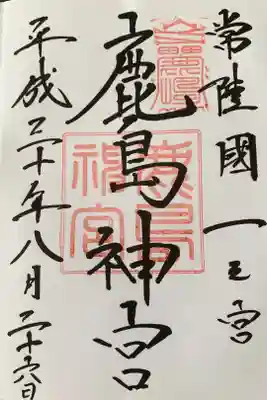 常陸國一之宮
鹿島神宮
鹿島神宮
平成三十年八月二十六日